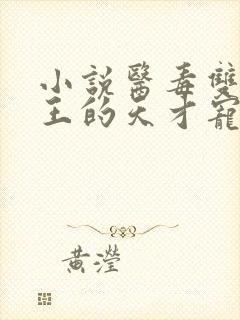 小說醫毒雙
王的天才寵
黃瀅